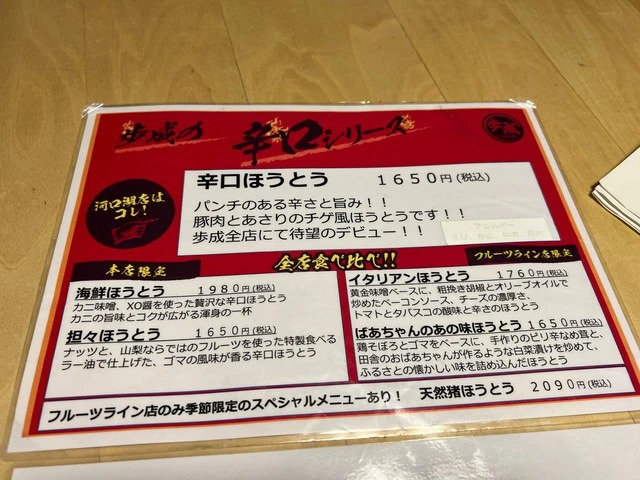 歩成の 辛口シリーズ
河口湖店は
コレ!
辛口ほうとう 1650円(税込)
パンチのある辛さと旨み!!
豚肉とあさりのチゲ風ほうとうです!!
歩成全店にて待望のデビュー!!
全店食べ比べ!!
本店限定
海鮮ほうとう 1980円(税込)
カニ味噌、XO醤を使った贅沢な辛口ほうとう
カニの旨味とコクが広がる渾身の一杯
担々ほうとう 1650円(税込)
ナッツと、山梨ならではのフルーツを使った特製食べる
ラー油で仕上げた、ゴマの風味が香る辛口ほうとう
フルーツライン店限定
イタリアンほうとう 1760円(税込)
黄金味噌ベースに、粗挽き胡椒とオリーブオイルで
炒めたベーコンソース、チーズの濃厚さ、
トマトとタバスコの酸味と辛さのほうとう
ばあちゃんのあの味ほうとう 1650円(税込)
鶏そぼろとゴマをベースに、手作りのピリ辛なめ茸と、
田舎のおばあちゃんが作るような白菜漬けを炒めて、
ふるさとの懐かしい味を詰め込んだほうとう
フルーツライン店のみ季節限定のスペシャルメニューあり! 天然猪ほうとう 2090円(税込)